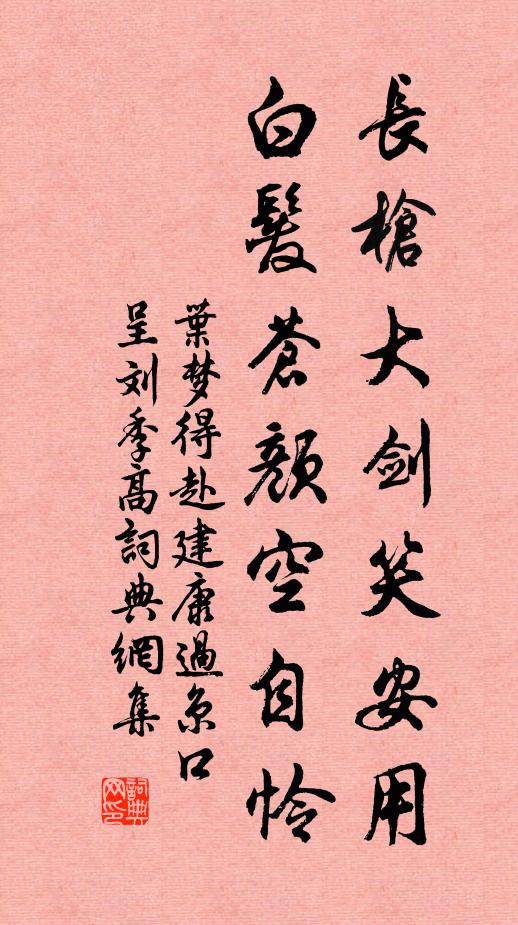 長槍大劍笑安用
白髮蒼顏空自憐
葉梦得赴建康過京口
呈刘季高詞典網集
詞典
网印